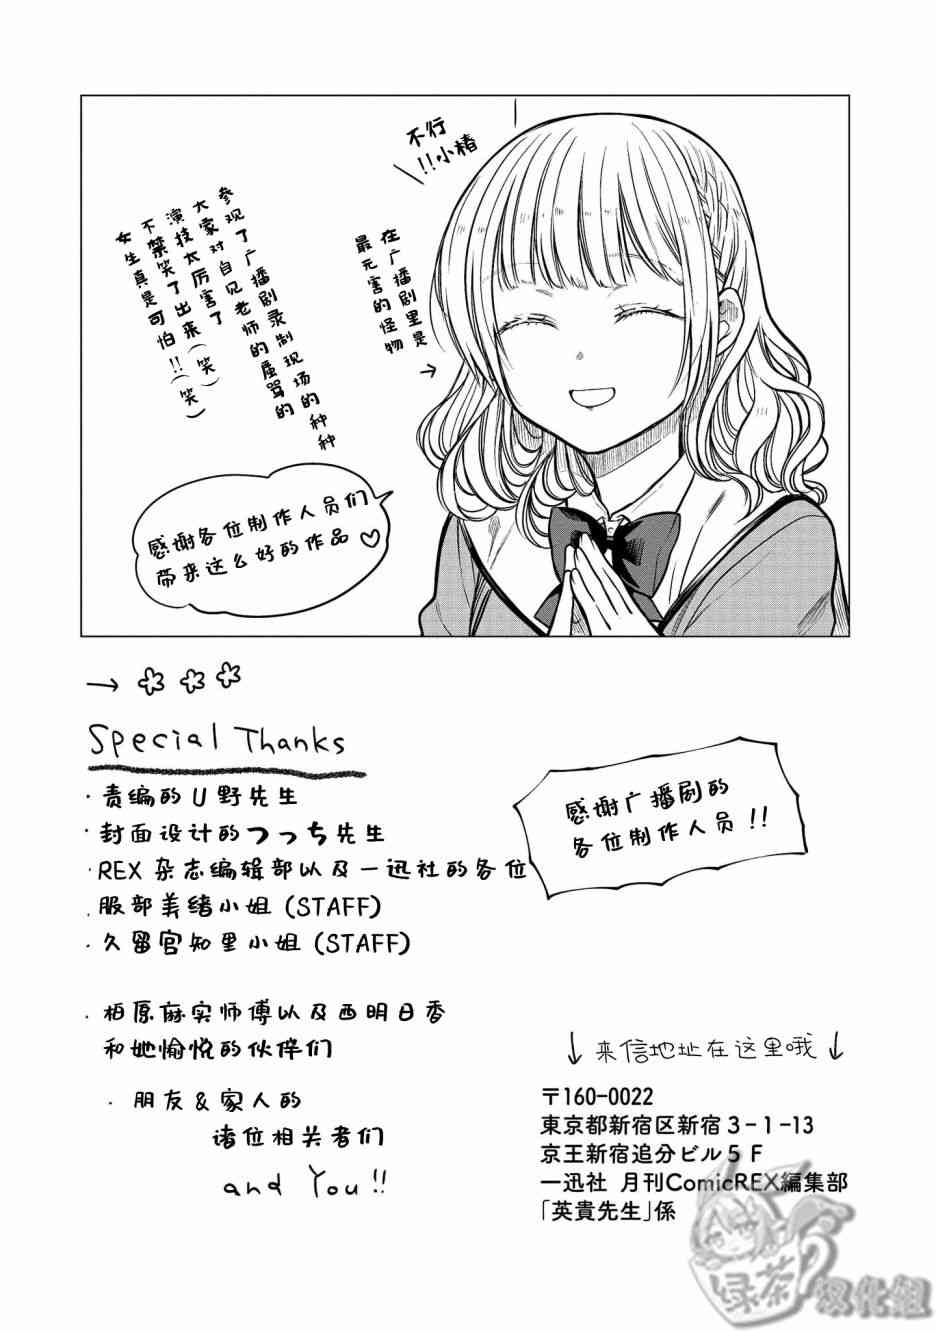 不行
!!小椿
参观了广播剧录制现场的种种
大家对自见老师的辱骂的
演技太厉害了
不禁笑了出来(笑)
女生真是可怕!!(笑)
在广播剧里是
最无害的怪物
→
感谢各位制作人员们
带来这么好的作品♡
→
Special Thanks
·责编的U野先生
·封面设计的つっち先生
·REX杂志编辑部以及一迅社的各位
·服部美绪小姐(STAFF)
·久留宫知里小姐(STAFF)
感谢广播剧的
各位制作人员!!
·柏原麻实师傅以及西明日香
和她愉悦的伙伴们
·朋友&家人的
诸位相关者们
and You!!
↓来信地址在这里哦↓
〒160-0022
東京都新宿区新宿3-1-13
京王新宿追分ビル5F
一迅社 月刊ComicREX編集部
「英貴先生」係
绿茶
汉化组